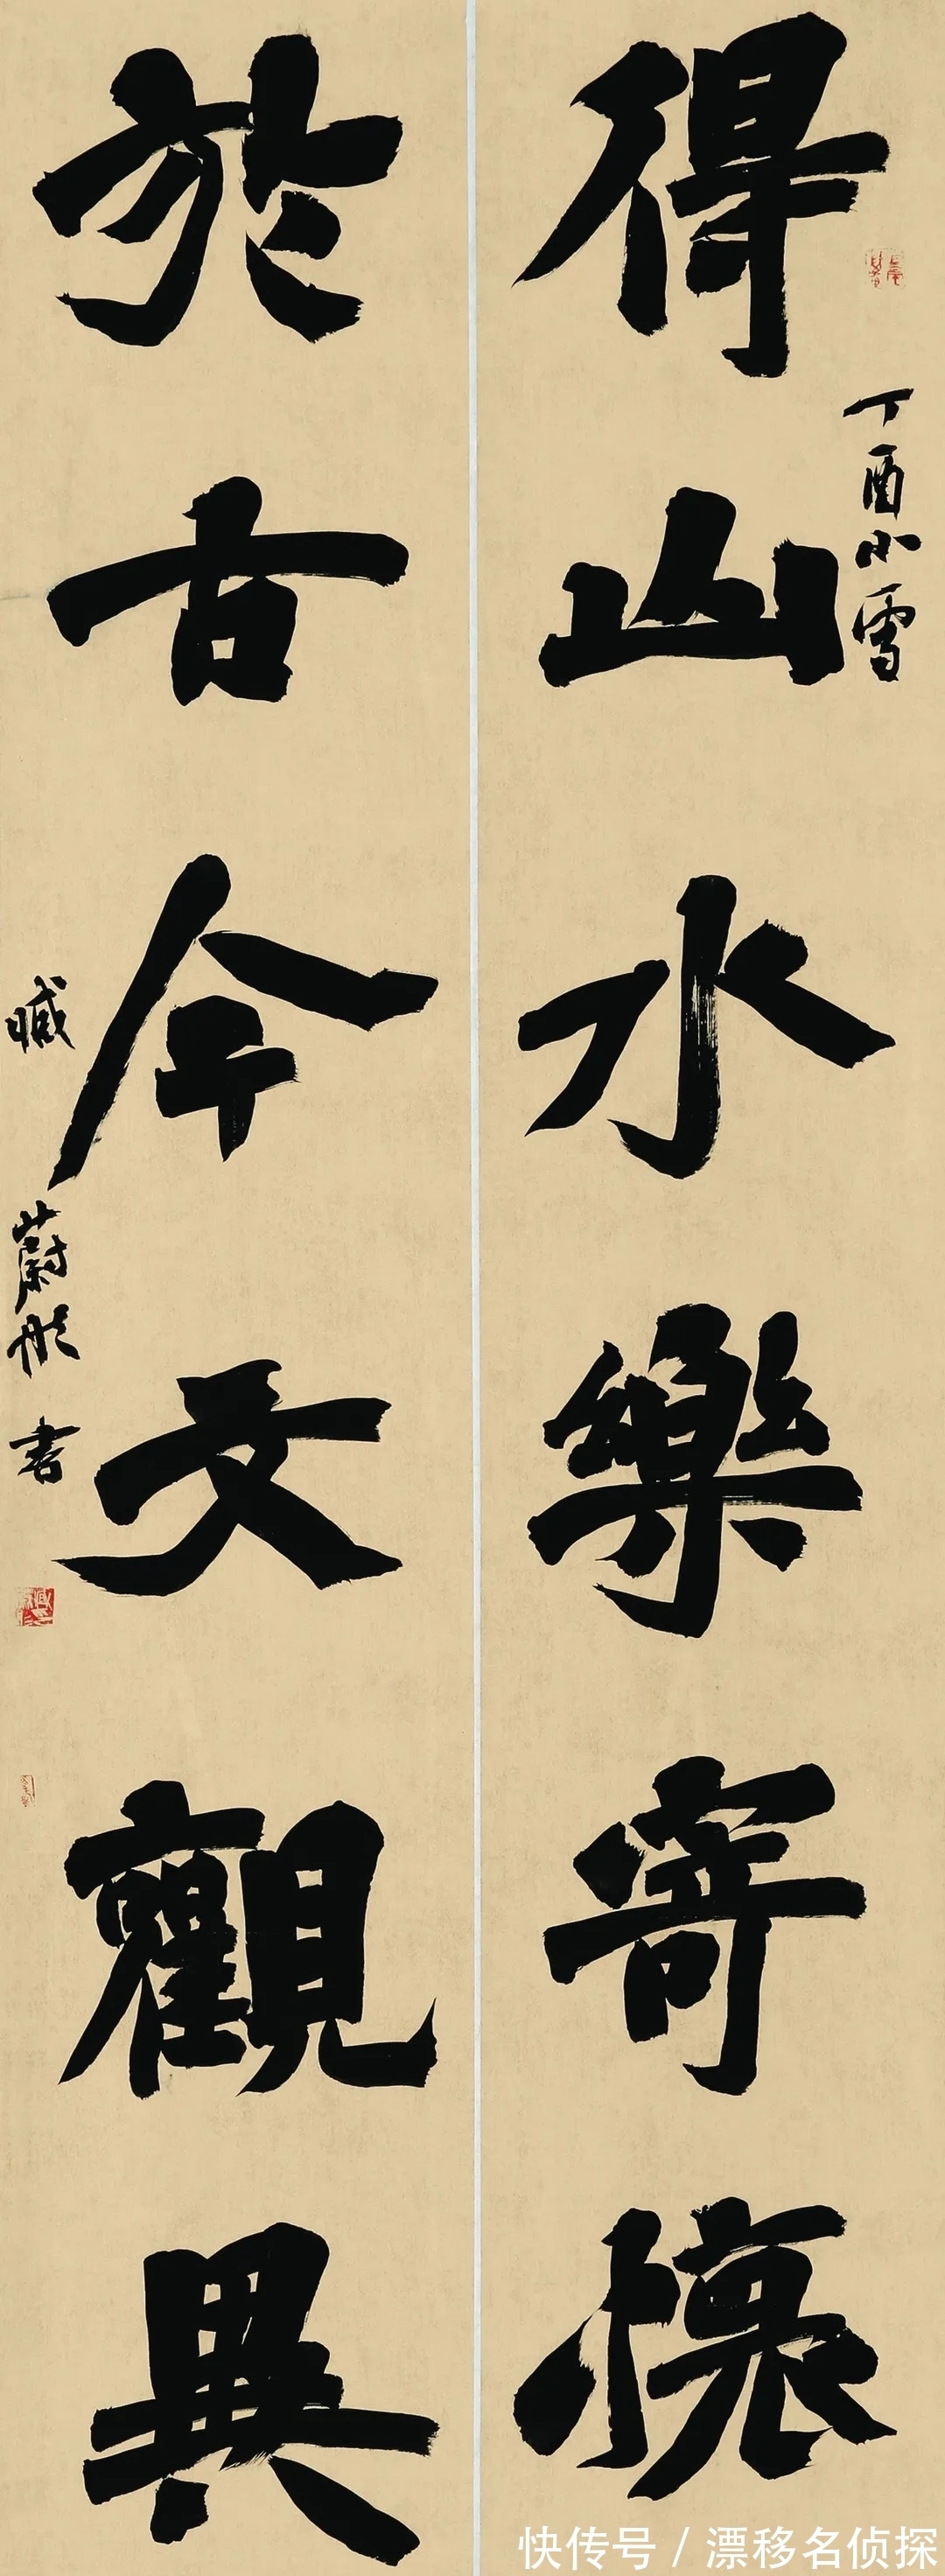 得山水樂寄懷
丁酉小雪
於古今文觀異
臧蔚彤書
快传号 / 漂移名侦探